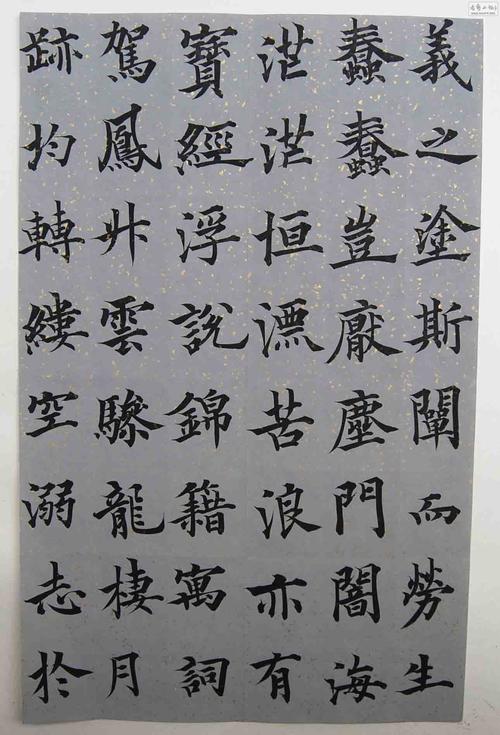 義之塗斯闡而勞生
蠢蠢豈厭塵門闇海
茫茫恒漂苦浪亦有
寶經浮說錦籍寓詞
駕鳳升雲驂龍棲月
跡均轉縷空溺志於